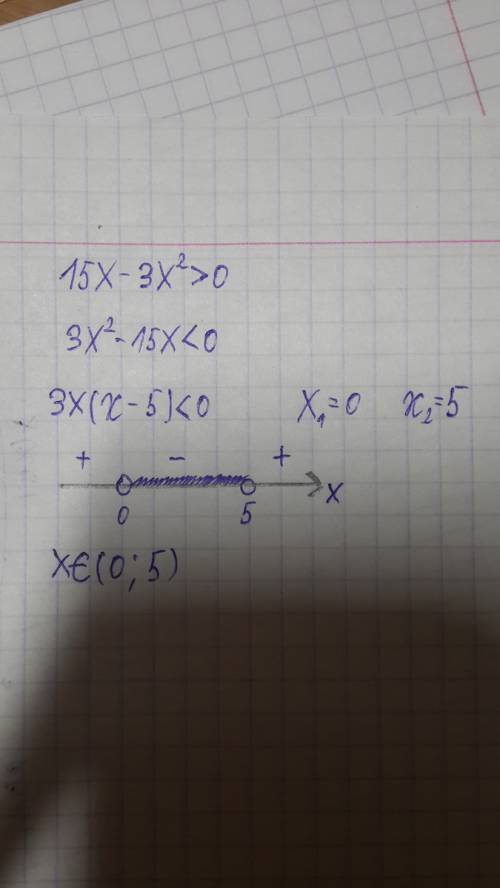 15x - 3x² > 0
3x² - 15x < 0
3x(x - 5) < 0 x₁ = 0 x₂ = 5
+ - +
0 5 x
x ∈ (0; 5)